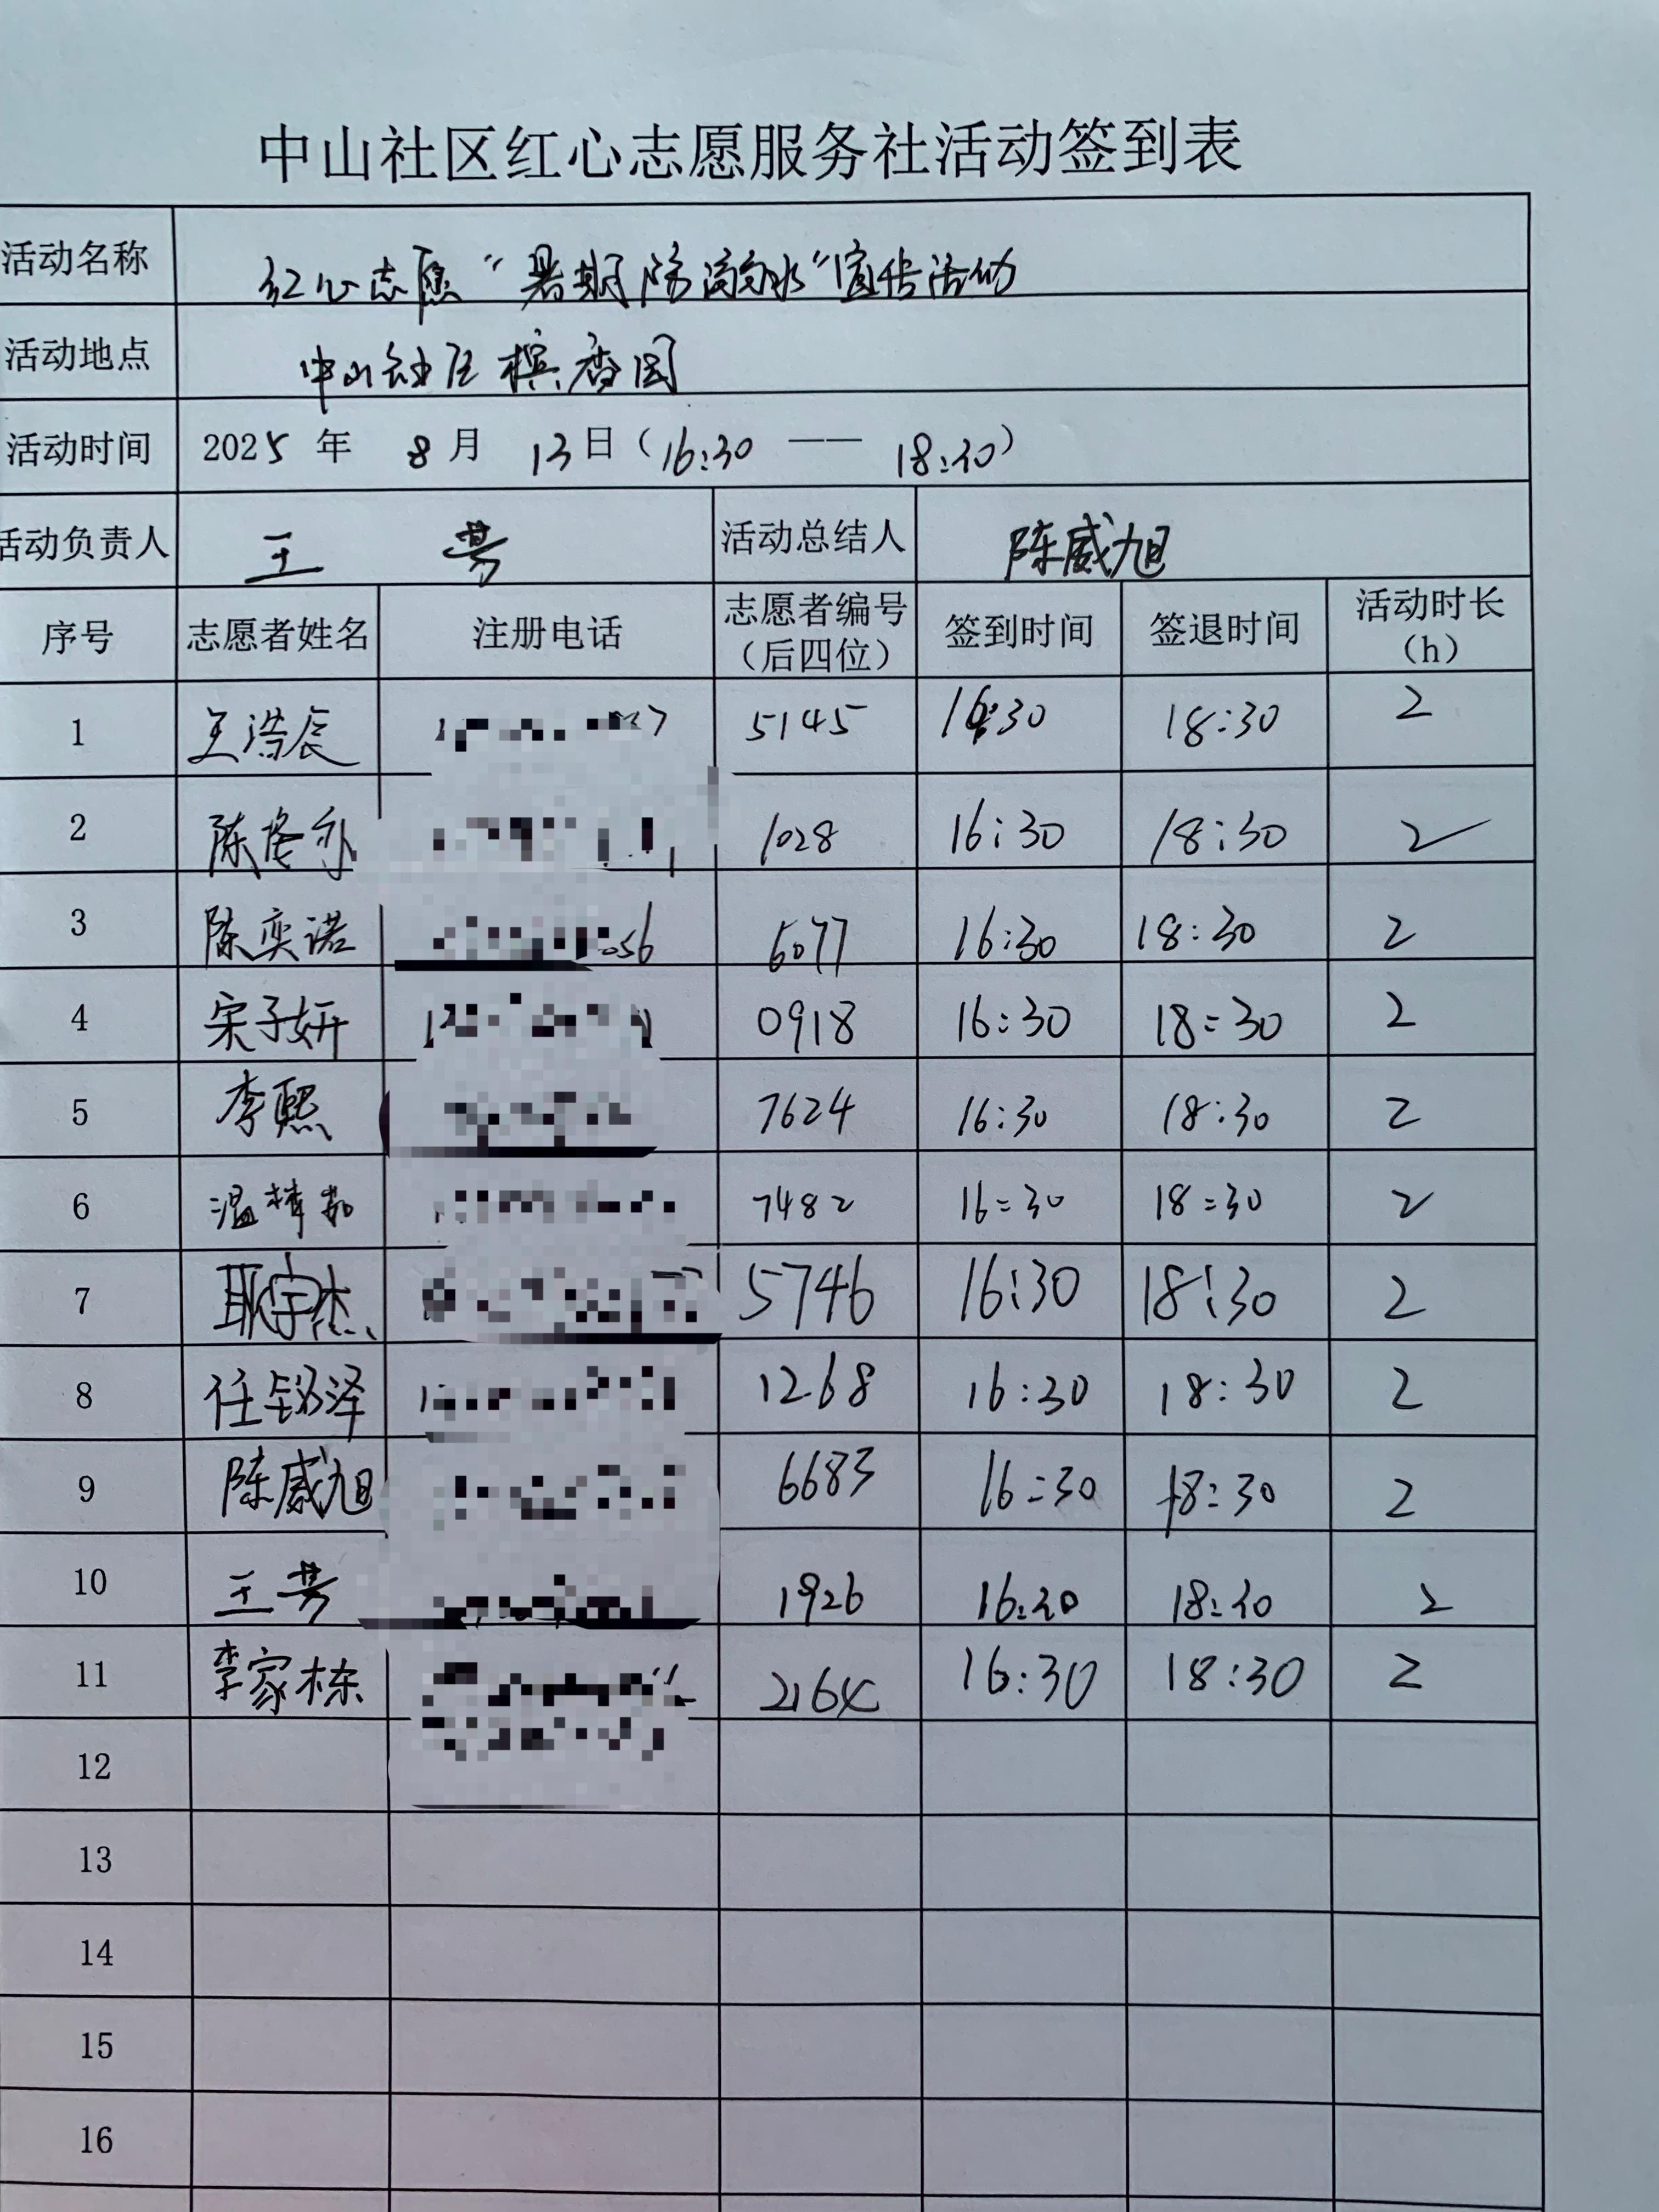 中山社区红心志愿服务社活动签到表
活动名称 红心志愿“暑期防溺水”宣传活动
活动地点 中山社区槟香园
活动时间 2025年 8月 13日(16:30 —— 18:30)
活动负责人 王芳 活动总结人 陈威旭
序号 志愿者姓名 注册电话 志愿者编号(后四位) 签到时间 签退时间 活动时长(h)
1 王浩辰 5145 16:30 18:30 2
2 陈 1028 16:30 18:30 2
3 陈奕诺 056 6077 16:30 18:30 2
4 宋子妍 0918 16:30 18:30 2
5 李熙 7624 16:30 18:30 2
6 温梓茹 7482 16:30 18:30 2
7 耿宇杰 5746 16:30 18:30 2
8 任泽 1268 16:30 18:30 2
9 陈威旭 6683 16:30 18:30 2
10 王芳 1926 16:30 18:30 2
11 李家栋 2164 16:30 18:30 2
12
13
14
15
16